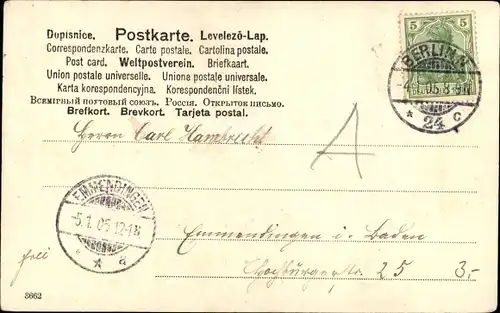 Dopisnice. Postkarte. Levelező-Lap.
Correspondenzkarte. Carte postale. Cartolina postale.
Post card. Weltpostverein. Briefkaart.
Union postale universelle. Unione postale universale.
Karta korespondencyjna. Korespondenční lístek.
Всемирный почтовый союзъ. Россия. Открытое письмо.
Brefkort. Brevkort. Tarjeta postal.
5 5
BERLIN
24 c
A
Herrn Carl
EMMENDINGEN
5.1.05.12-1N
a
Emmendingen i. Baden
25 3.-
3662